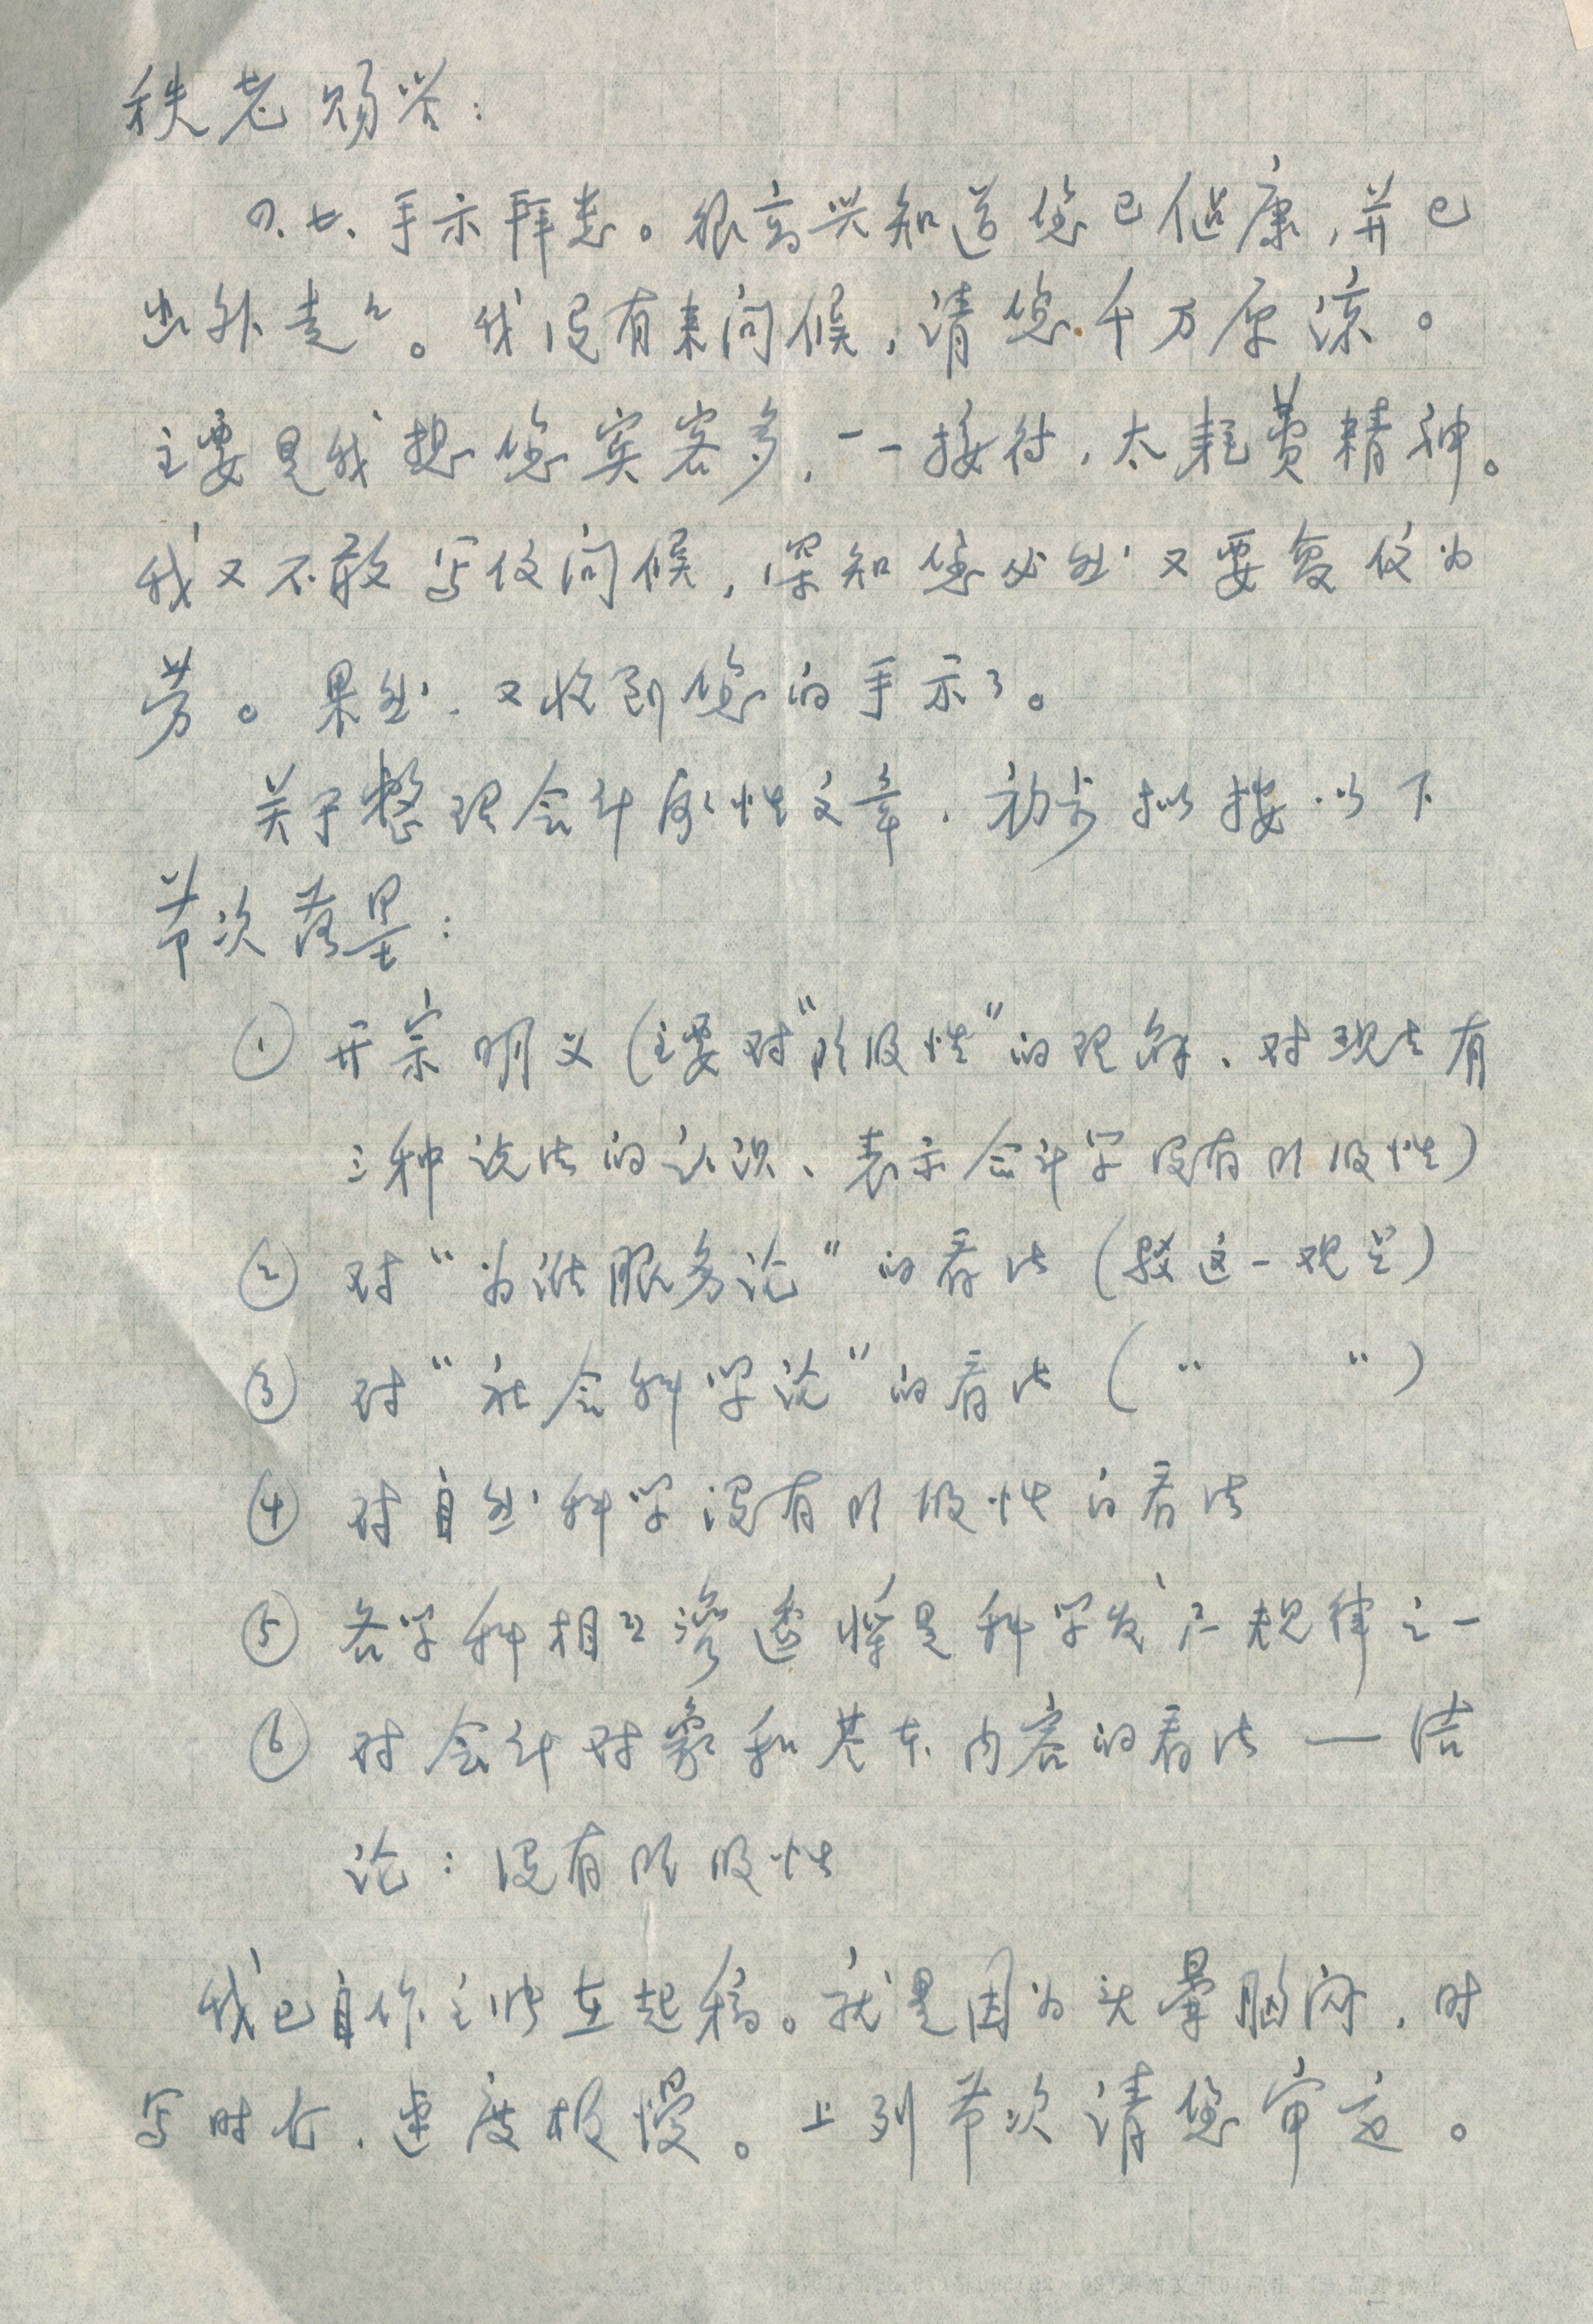 秩老赐鉴：
七、手示拜悉。很高兴知道您已健康，并已
出外走々。我没有来问候，请您千万原谅。
主要是我想您宾客多，一一接待，太耗费精神。
我又不敢写信问候，深知您必然又要复信为
劳。果然，又收到您的手示了。
关于整理会计属性文章，初步拟按以下
节次落墨：
① 开宗明义（主要对“阶级性”的理解、对现在有
三种说法的认识、表示会计学没有阶级性）
② 对“为谁服务论”的看法（驳这一观点）
③ 对“社会科学论”的看法（〃 〃）
④ 对自然科学没有阶级性的看法
⑤ 各学科相互渗透将是科学发产规律之一
⑥ 对会计对象和基本内容的看法——结
论：没有阶级性
我已自作主张在起稿。就是因为头晕脑闷，时
写时介，速度极慢。上列节次请您审定。